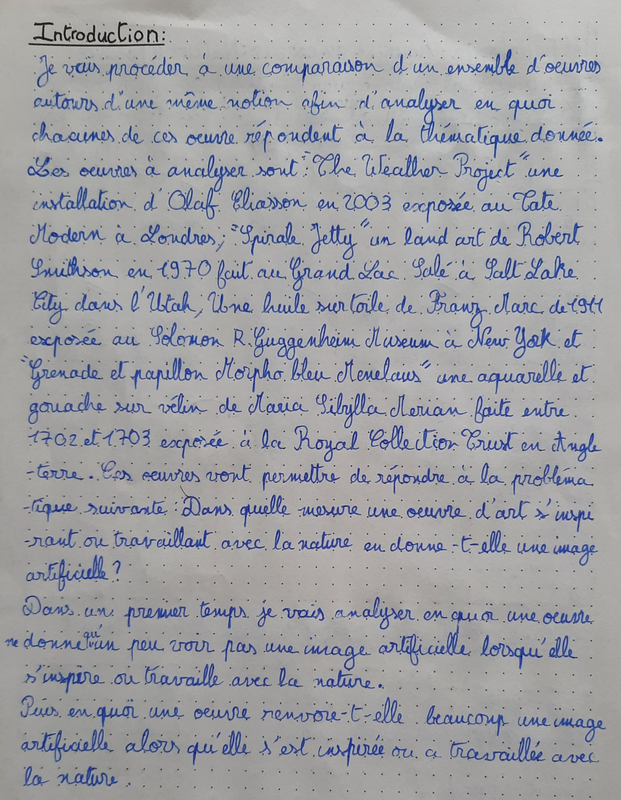 Introduction:
Je vais procéder à une comparaison d'un ensemble d'oeuvres
autours d'une même notion afin d'analyser en quoi
chacunes de ces oeuvre répondent à la thématique donnée.
Les oeuvres à analyser sont "The Weather Project" une
installation d'Olaf Eliasson en 2003 exposée au Tate
Modern à Londres, "Spirale Jetty" un land art de Robert
Smithson en 1970 fait au Grand Lac Salé à Salt Lake
City dans l'Utah, Une huile sur toile de Franz Marc de 1911
exposée au Solomon R. Guggenheim Museum à New Yok et
"Grenade et papillon Morpho bleu Menelaus" une aquarelle et
gouache sur vélin de Maria Sibylla Merian faite entre
1702 et 1703 exposée à la Royal Collection Trust en Angle
-terre. Ces oeuvres vont permettre de répondre à la probléma
-tique suivante: Dans quelle mesure une oeuvre d'art s'inspi
-rant ou travaillant avec la nature en donne-t-elle une image
artificielle?
Dans un premier temps je vais analyser en quoi une oeuvre
ne donne qu'un peu voir pas une image artificielle lorsqu'elle
s'inspire ou travaille avec la nature.
Puis en quoi une oeuvre renvoie-t-elle beaucoup une image
artificielle alors qu'elle s'est inspirée ou a travaillée avec
la nature.